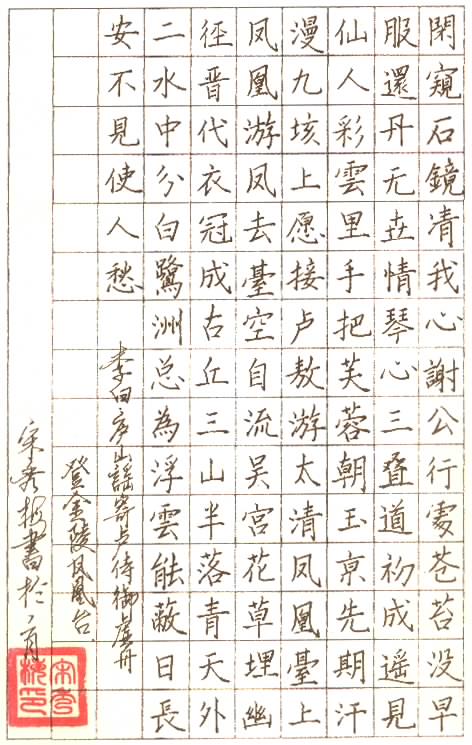 閑窺石鏡清我心謝公行處苍苔没早
服還丹无世情琴心三叠道初成遥見
仙人彩雲里手把芙蓉朝玉京先期汗
漫九垓上愿接卢敖游太清凤凰臺上
凤凰游凤去臺空自流吴宫花草埋幽
径晋代衣冠成古丘三山半落青天外
二水中分白鷺洲总為浮雲能蔽日長
安不見使人愁
李白庐山謡寄卢侍御虚舟
登金陵凤凰台
宋秀梅書於
宋秀梅印